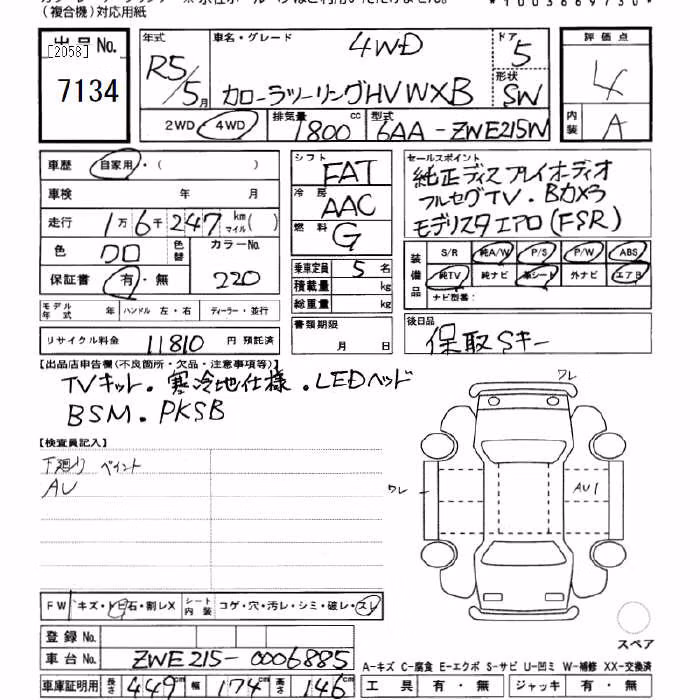 (複合機)対応用紙
*1003669730*
出品No. 年式 車名・グレード 4WD ドア 5 評価点
[2058]
7134 R5/5月 カローラツーリングHV WXB 形状 SW 4
2WD・4WD 排気量 1800 cc 型式 6AA-ZWE215W 内装 A
車歴 自家用・( ) シフト FAT セールスポイント
車検 年 月 冷房 AAC 純正ディスプレイオーディオ
走行 1万6千247km マイル( ) 燃料 G フルセグTV・Bカメラ
モデリスタエアロ(FSR)
色 クロ 色替 カラーNo. 220 乗車定員 5名 装備品 S/R 純A/W P/S P/W ABS
保証書 有・無 積載量 kg 純TV 純ナビ 革シート 外ナビ エアB
総重量 kg ナビ型番:
モデル年式 年 ハンドル 左・右 ディーラー・並行 書類期限 月 日 後日品
リサイクル料金 11810 円 預託済 保取Sキー
【出品店申告欄(不良箇所・欠品・注意事項等)】
TVキット・寒冷地仕様・LEDヘッド
BSM・PKSB
ワレ
【検査員記入】
下廻り ペイント
AU
ワレ AU1
FW キズ・トビ石・割レX シート内装 コゲ・穴・汚レ・シミ・破レ・スレ
スペア
登録No.
車台No. ZWE215-0006885
A-キズ C-腐食 E-エクボ S-サビ U-凹ミ W-補修 XX-交換済
車庫証明用 長さ 449cm 幅 174cm 高さ 146cm 工具 有・無 ジャッキ 有・無